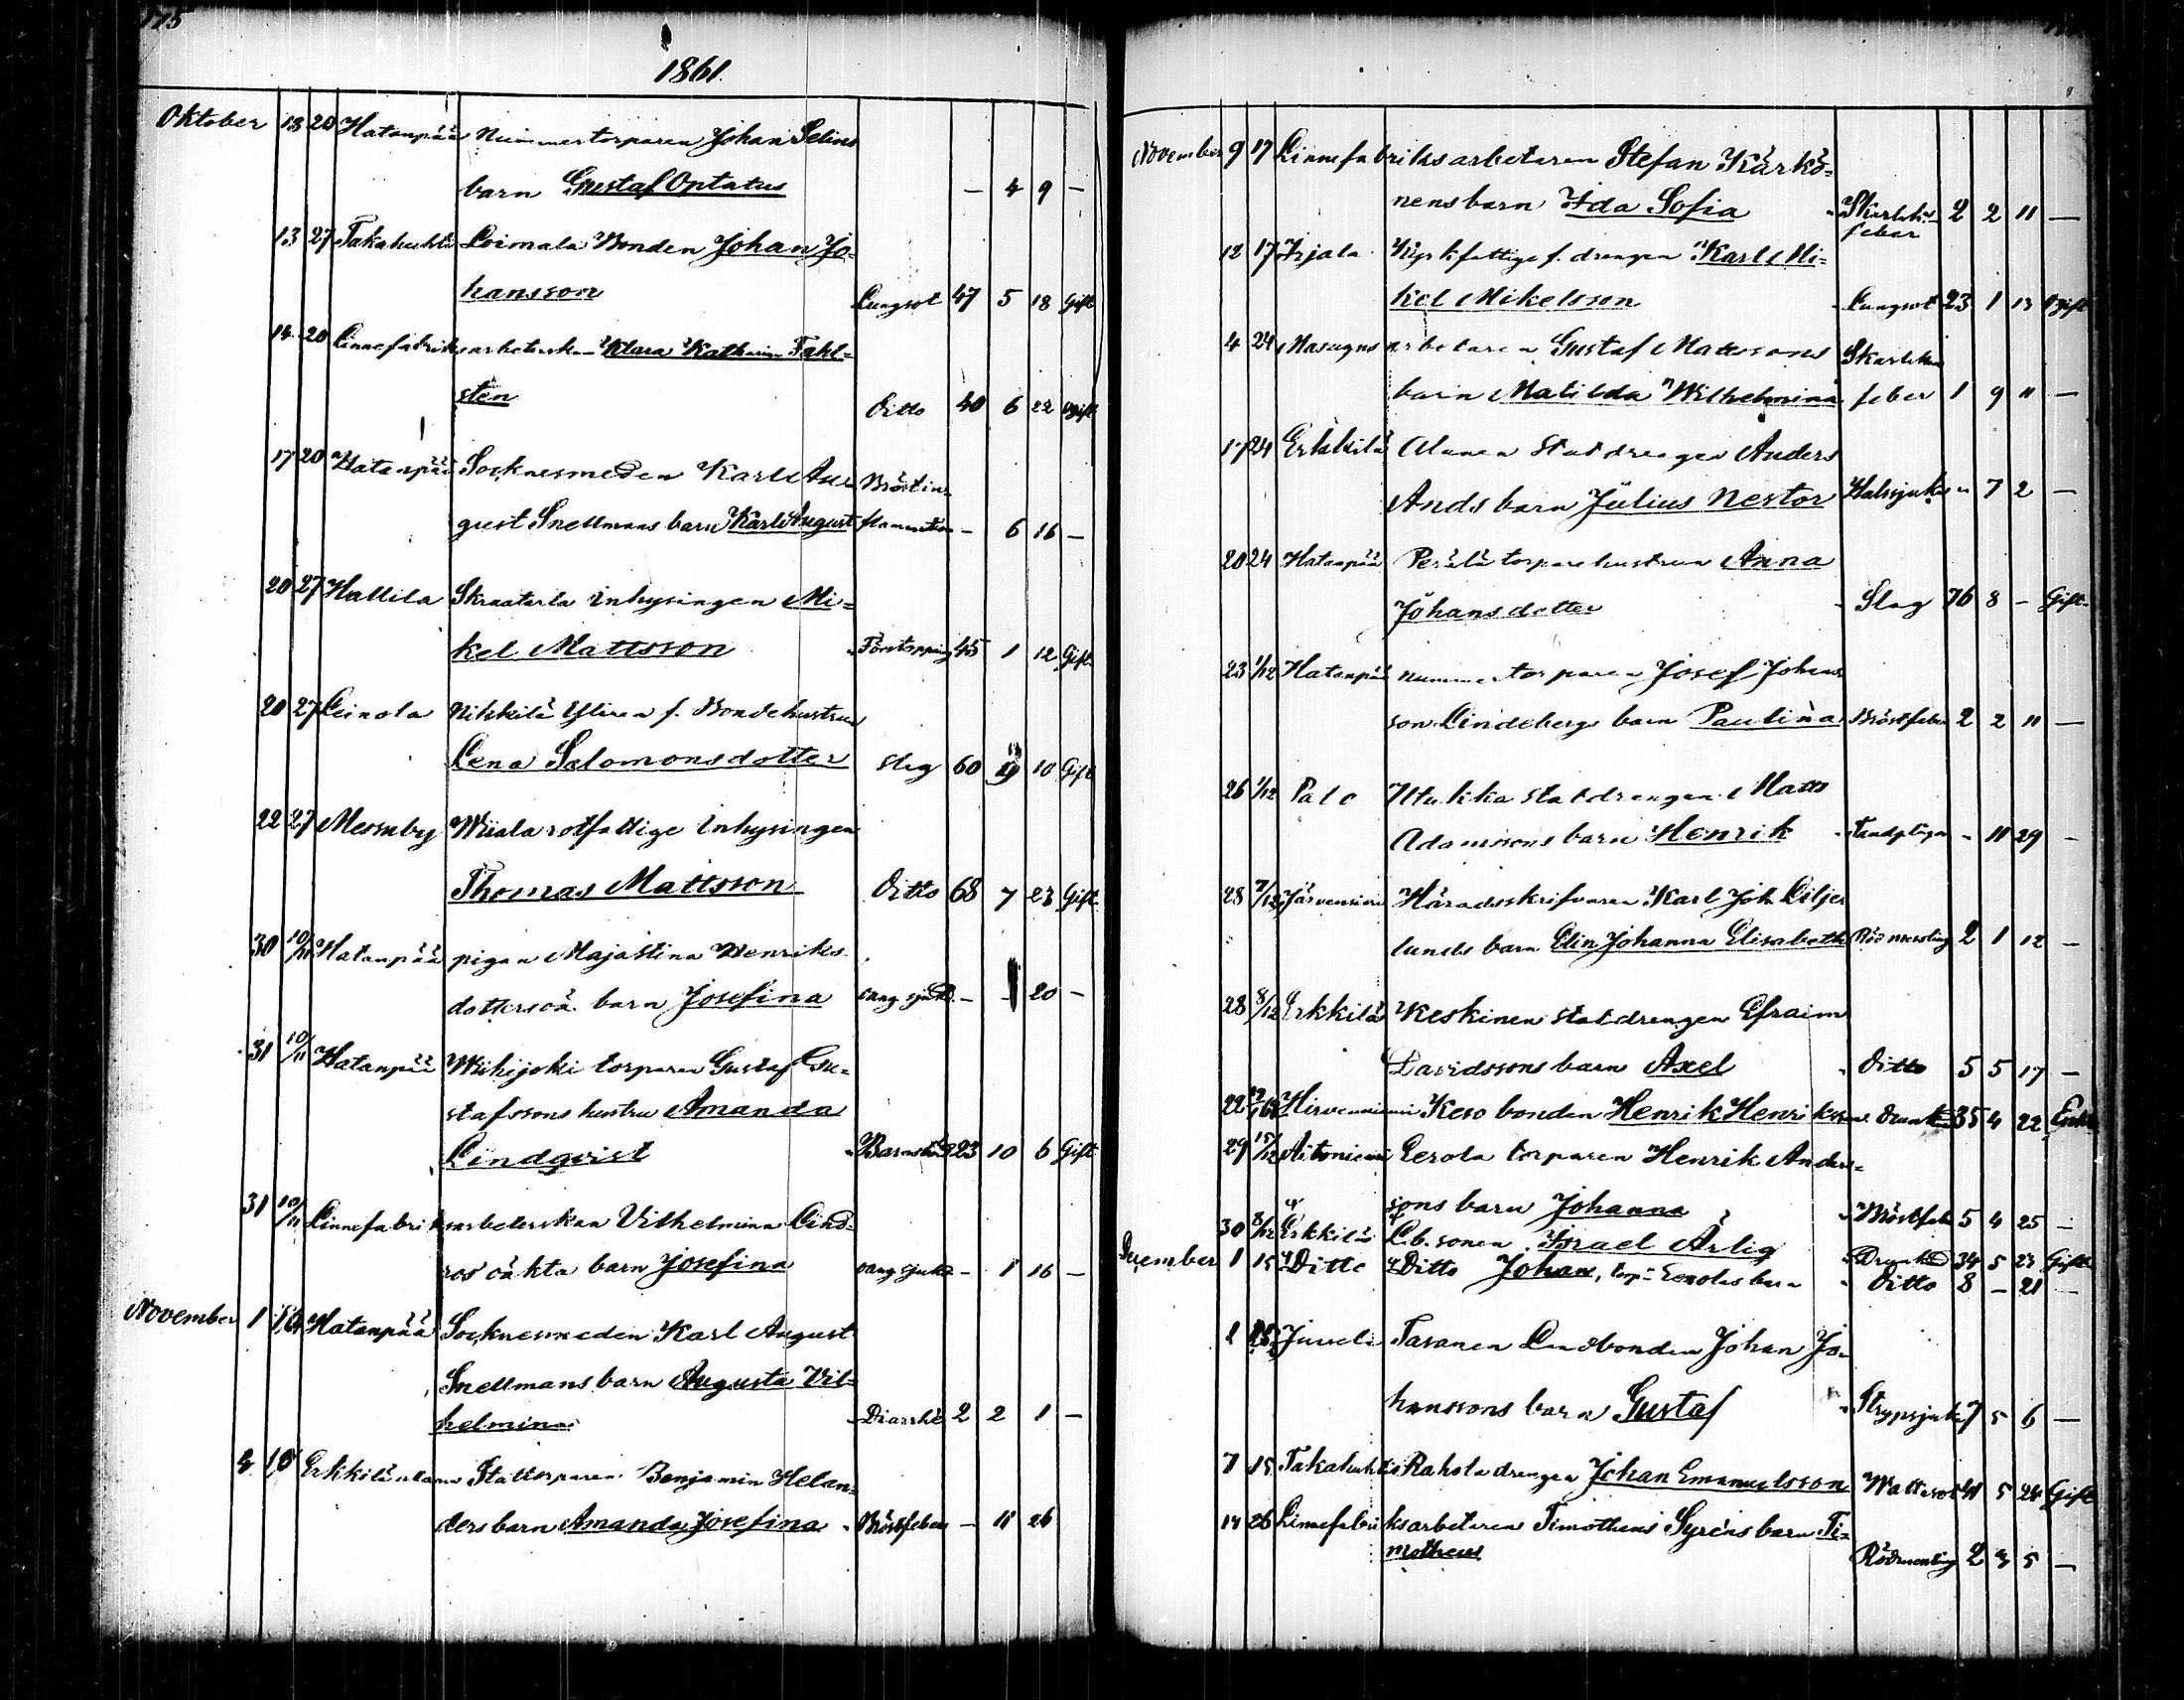 175
1861.
Oktober 13 20 Hatanpää Nummertorparen Johan Selins
barn Gustaf Optatus — 4 9 —
13 27 Takahuhti Loimala Bonden Johan Jo-
hansson Lungsot 47 5 18 Gift
14 20 Linnefabriksarbeterskan Klara Katharina Fahl-
sten Ditto 40 6 22 Ogift
17 20 Hatanpää Socknesmeden Karl Au- Bröstin-
gust Snellmans barn Karl August flammation — 6 16 —
20 27 Hallila Skraatarla Inhysingen Mi-
kel Mattsson Förstoppning 45 1 12 Gift
20 27 Leinola Nikkilä Yliren f. Bondehustrun
Lena Salomonsdotter Slag 60 10 Gift
22 27 Messuby Wiiala rotfattige Inhysingen
Thomas Mattsson Ditto 68 7 23 Gift
30 10/11 Hatanpää pigan Majastina Henriks-
dotters oä. barn Josefina oang sjukd. — 20 —
31 10/11 Hatanpää Wihijoki torparen Gustaf Gu-
stafssons hustru Amanda
Lindqvist Barnsbörd 23 10 6 Gift
31 10/11 Linnefabriksarbeterskan Vilhelmina Lind-
ros' oäkta barn Josefina oang sjukd — 1 16 —
November 1 10 Hatanpää Socknesmeden Karl August
Snellmans barn Augusta Vil-
helmina Diarrhé 2 2 1 —
10 Erkkilä Stattorparen Benjamin Helan-
ders barn Amanda Josefina Bröstfeber — 11 26
November 9 17 Linnefabriksarbetaren Stefan Kärkö-
nens barn Ida Sofia Skarlakans- 2 2 11 —
feber
12 17 Irjala Kyrkfattige f. drengen Karl Mi-
kel Mikelsson Lungsot 23 1 13 Ogift
4 24 Masugnsarbetaren Gustaf Mattssons Skarlakans
barn Matilda Wilhelmina feber 1 9 11 —
17 24 Erkkilä Alanen Statdrengen Anders
Ands barn Julius Nestor Halssjuka " 7 2 —
20 24 Hatanpää Perälä torparehustrun Anna
Johansdotter Slag 76 8 — Gift
23 1/12 Hatanpää nummertorparen Josef Johans
son Lindebergs barn Paulina Bröstfeber 2 2 11 —
26 1/12 Palo Utukka statdrengen Matts
Adamssons barn Henrik Tandplågor - 11 29 —
28 7/12 Järvensivu Häradsskrifvaren Karl Joh. Lilje
lunds barn Elin Johanna Elisabeth Röd messling 2 1 12 —
28 8/12 Erkkilä Keskinen statdrengen Efraim
Davidssons barn Axel Ditto 5 5 17 —
22 Hirvenniemi Keso bonden Henrik Henriksson drunk 35 4 22 Enkl.
29 15/12 Aitoniemi Eerola torparen Henrik Anders-
sons barn Johanna Bröstfeb 5 4 25 —
30 8/12 Erkkilä L.b. sonen Israel Ärlig Drunkd 34 5 23 Gift
December 1 15 Ditto Ditto Johan, torp. Eerolas barn Ditto 8 — 21 —
2 15 Juvela Tasanen Landbonden Johan Jo-
hanssons barn Gustaf Strypsjuka 7 5 6 —
7 15 Takahuhti Rahola drengen Johan Emanuelsson Wattusot 41 5 24 Gift
14 26 Linnefabriksarbetaren Timotheus Syréns barn Ti-
motheus Rödmessling 2 3 5 —